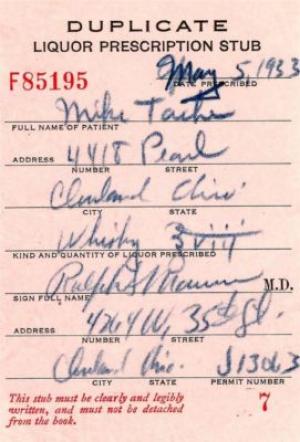 DUPLICATE
LIQUOR PRESCRIPTION STUB
F85195 May 5, 1933
DATE PRESCRIBED
Mike
FULL NAME OF PATIENT
ADDRESS 4418 Pearl
NUMBER STREET
Cleveland Ohio
CITY STATE
Whisky ℥viii
KIND AND QUANTITY OF LIQUOR PRESCRIBED
Ralph M.D.
SIGN FULL NAME
ADDRESS 4264 W. 35th St.
NUMBER STREET
Cleveland Ohio. 13063
CITY STATE PERMIT NUMBER
This stub must be clearly and legibly
written, and must not be detached
from the book.
7